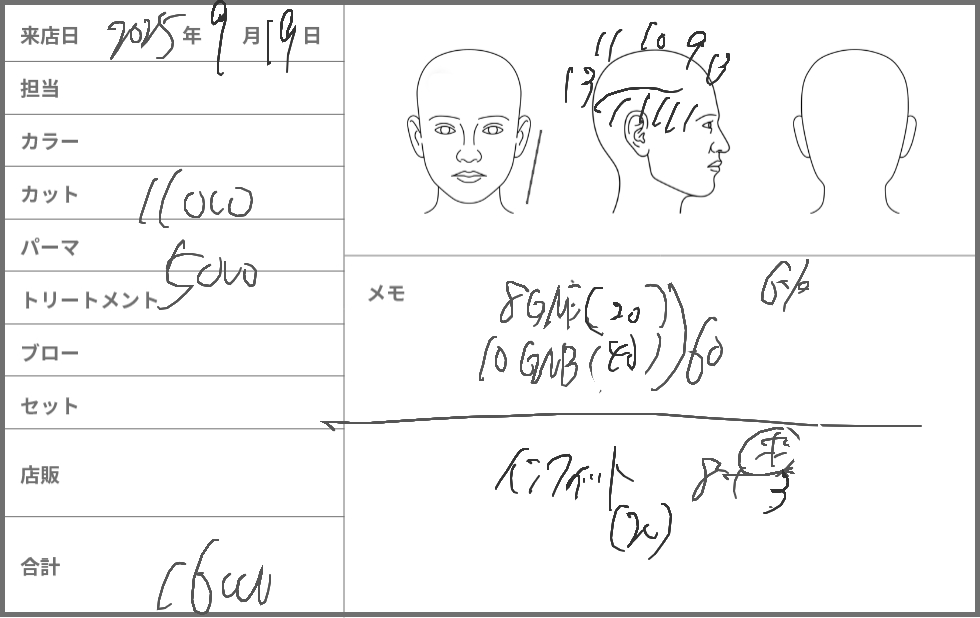 来店日 2025 年 9 月 19 日
担当
カラー
カット 11000
パーマ
トリートメント 5000
ブロー
セット
店販
合計 16000
13 11 10 9 13
メモ
8GNB(20)
10 GNB(40) 60
インフィット
(20)
8
3